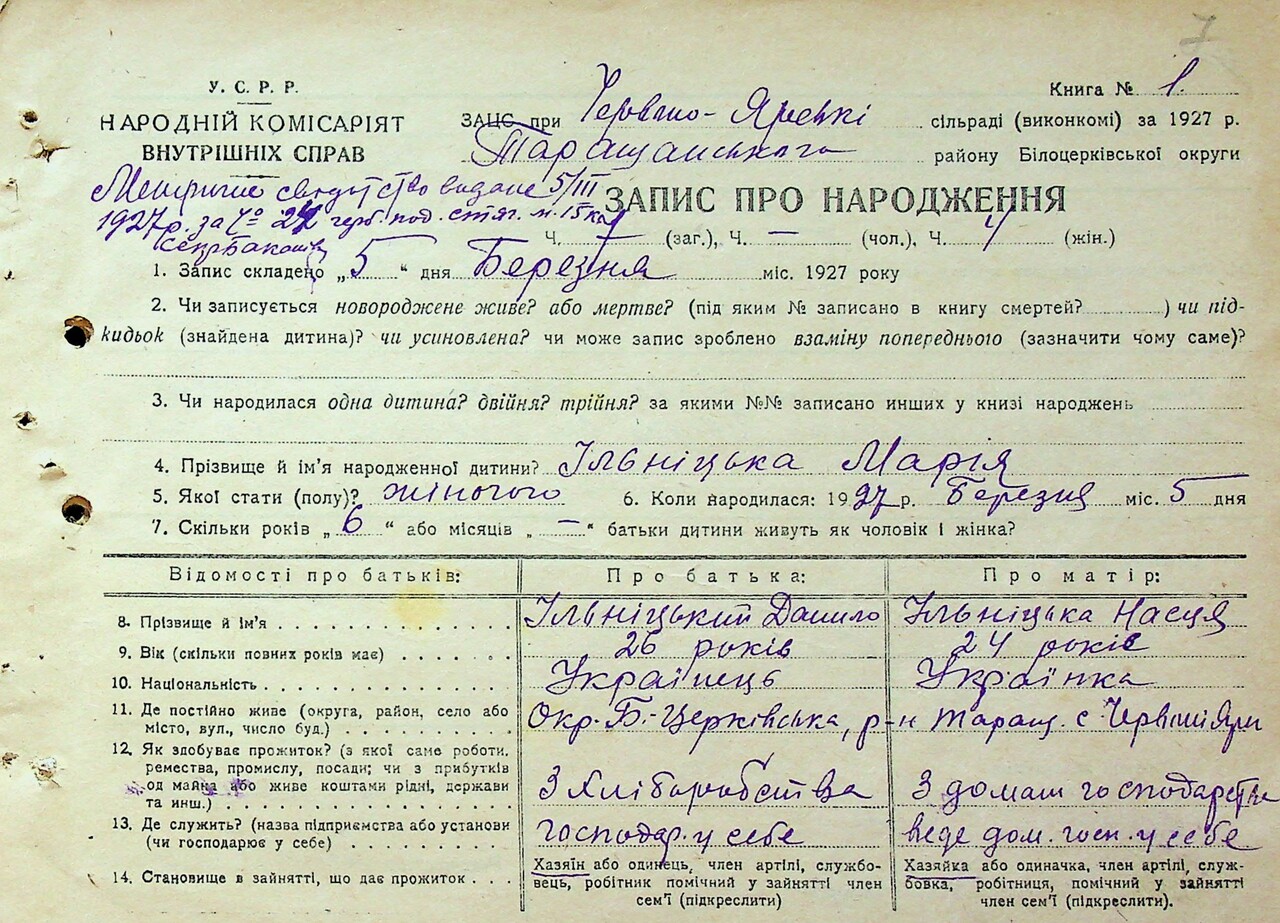 7
У. С. Р. Р.
НАРОДНІЙ КОМІСАРІЯТ
ВНУТРІШНІХ СПРАВ
ЗАЦС при Червоно-Ярській сільраді (виконкомі) за 1927 р.
Таращанського району Білоцерківської округи
Книга № 1.
Метричне свидутство видане 5/III
1927 р. за № 24 герб. под. стяг. м. 15 ко
ЗАПИС ПРО НАРОДЖЕННЯ
Ч. 7 (заг.), Ч. — (чол.), Ч. 4 (жін.)
1. Запис складено „ 5 “ дня Березня міс. 1927 року
2. Чи записується новороджене живе? або мертве? (під яким № записано в книгу смертей? ) чи під-
кидьок (знайдена дитина)? чи усиновлена? чи може запис зроблено взаміну попереднього (зазначити чому саме)?
3. Чи народилася одна дитина? двійня? трійня? за якими №№ записано инших у книзі народжень
4. Прізвище й ім'я народженної дитини? Ільніцька Марія
5. Якої стати (полу)? жіночого 6. Коли народилася: 1927 р. Березня міс. 5 дня
7. Скільки років „ 6 “ або місяців „ — “ батьки дитини живуть як чоловік і жінка?
Відомості про батьків: Про батька: Про матір:
8. Прізвище й ім'я Ільніцький Данило Ільніцька Насця
9. Вік (скільки повних років має) 26 років 24 років
10. Національність Українець Українка
11. Де постійно живе (округа, район, село або
місто, вул., число буд.) Окр. Б.-Церківська, р-н Таращ. с. Червоні Яри
12. Як здобуває прожиток? (з якої саме роботи,
ремества, промислу, посади; чи з прибутків
од майна або живе коштами рідні, держави
та инш.) З хліборобства З домаш господарства
13. Де служить? (назва підприємства або установи
(чи господарює у себе) господар. у себе веде дом. госп. у себе
14. Становище в зайнятті, що дає прожиток
Хазяїн або одинець, член артілі, службо-
вець, робітник помічний у зайнятті член
сем'ї (підкреслити)
Хазяйка або одиначка, член артілі, служ-
бовка, робітниця, помічний у зайнятті
член сем'ї (підкреслити).